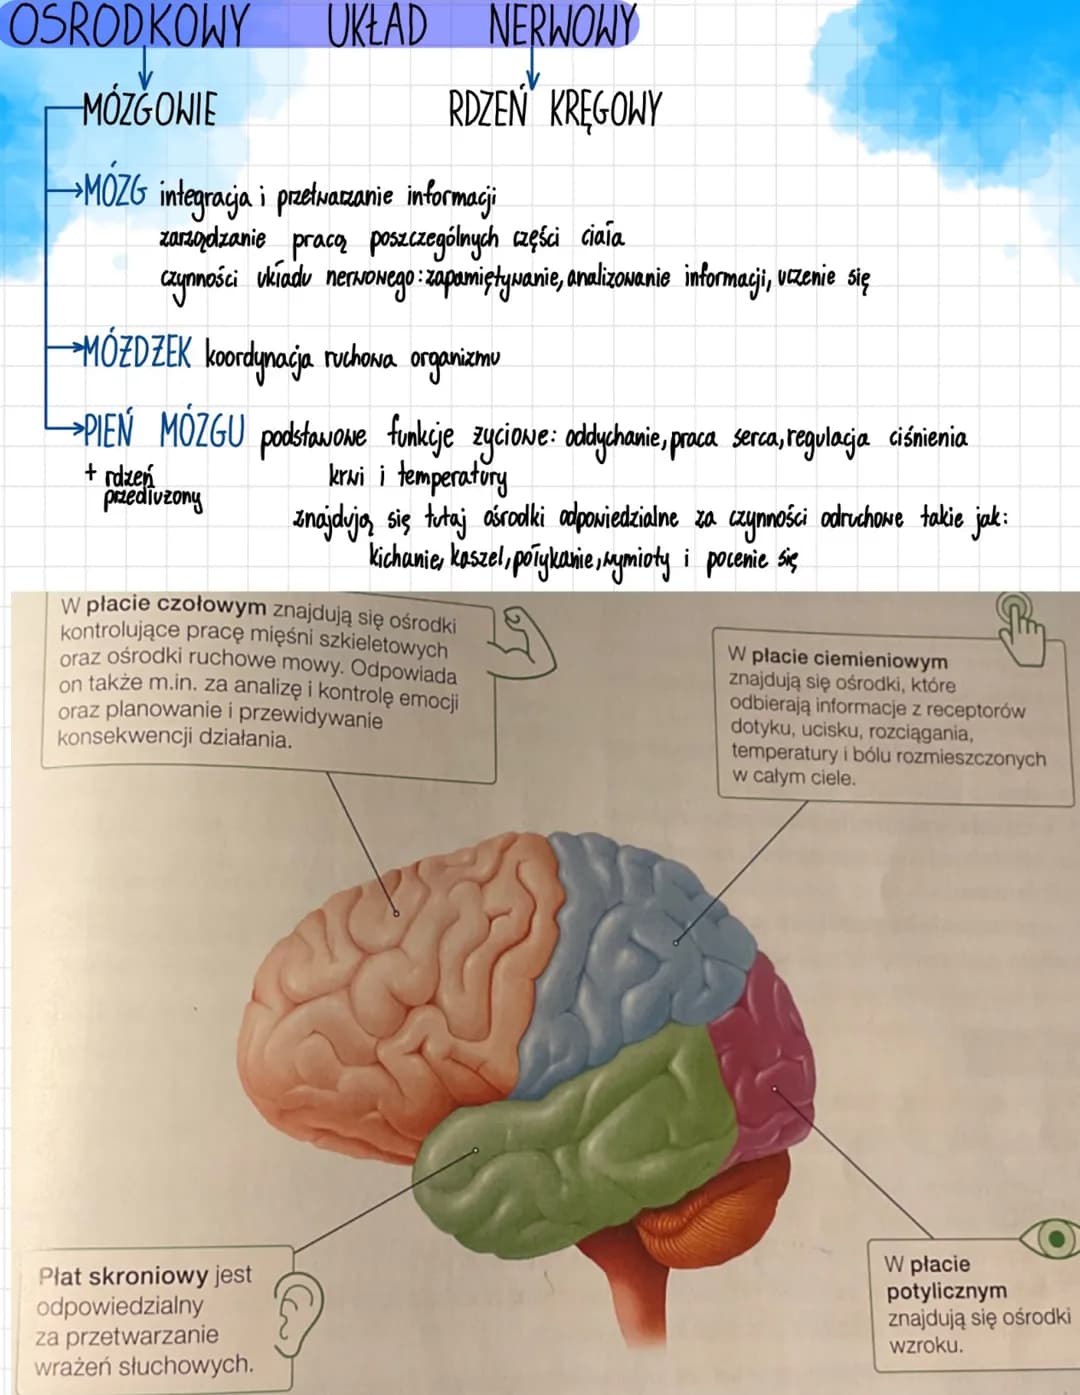 OŚRODKOWY UKŁAD NERWOWY
MÓZGOWIE RDZEŃ KRĘGOWY
MÓZG integracja i przetwarzanie informacji
zarządzanie pracą poszczególnych części ciała
czynności układu nerwowego: zapamiętywanie, analizowanie informacji, uczenie się
MÓŻDŻEK koordynacja ruchowa organizmu
PIEŃ MÓZGU podstawowe funkcje życiowe: oddychanie, praca serca, regulacja ciśnienia
krwi i temperatury
+ rdzeń
przedłużony
znajdują się tutaj ośrodki odpowiedzialne za czynności odruchowe takie jak:
kichanie, kaszel, połykanie, wymioty i pocenie się
W płacie czołowym znajdują się ośrodki
kontrolujące pracę mięśni szkieletowych
oraz ośrodki ruchowe mowy. Odpowiada
on także m.in. za analizę i kontrolę emocji
oraz planowanie i przewidywanie
konsekwencji działania.
W płacie ciemieniowym
znajdują się ośrodki, które
odbierają informacje z receptorów
dotyku, ucisku, rozciągania,
temperatury i bólu rozmieszczonych
w całym ciele.
Płat skroniowy jest
odpowiedzialny
za przetwarzanie
wrażeń słuchowych.
W płacie
potylicznym
znajdują się ośrodki
wzroku.